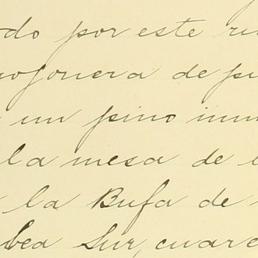 do por este ru
mojonera de pi
un pino inm
la mesa de
la Bufa de
bea Sur, cuarc